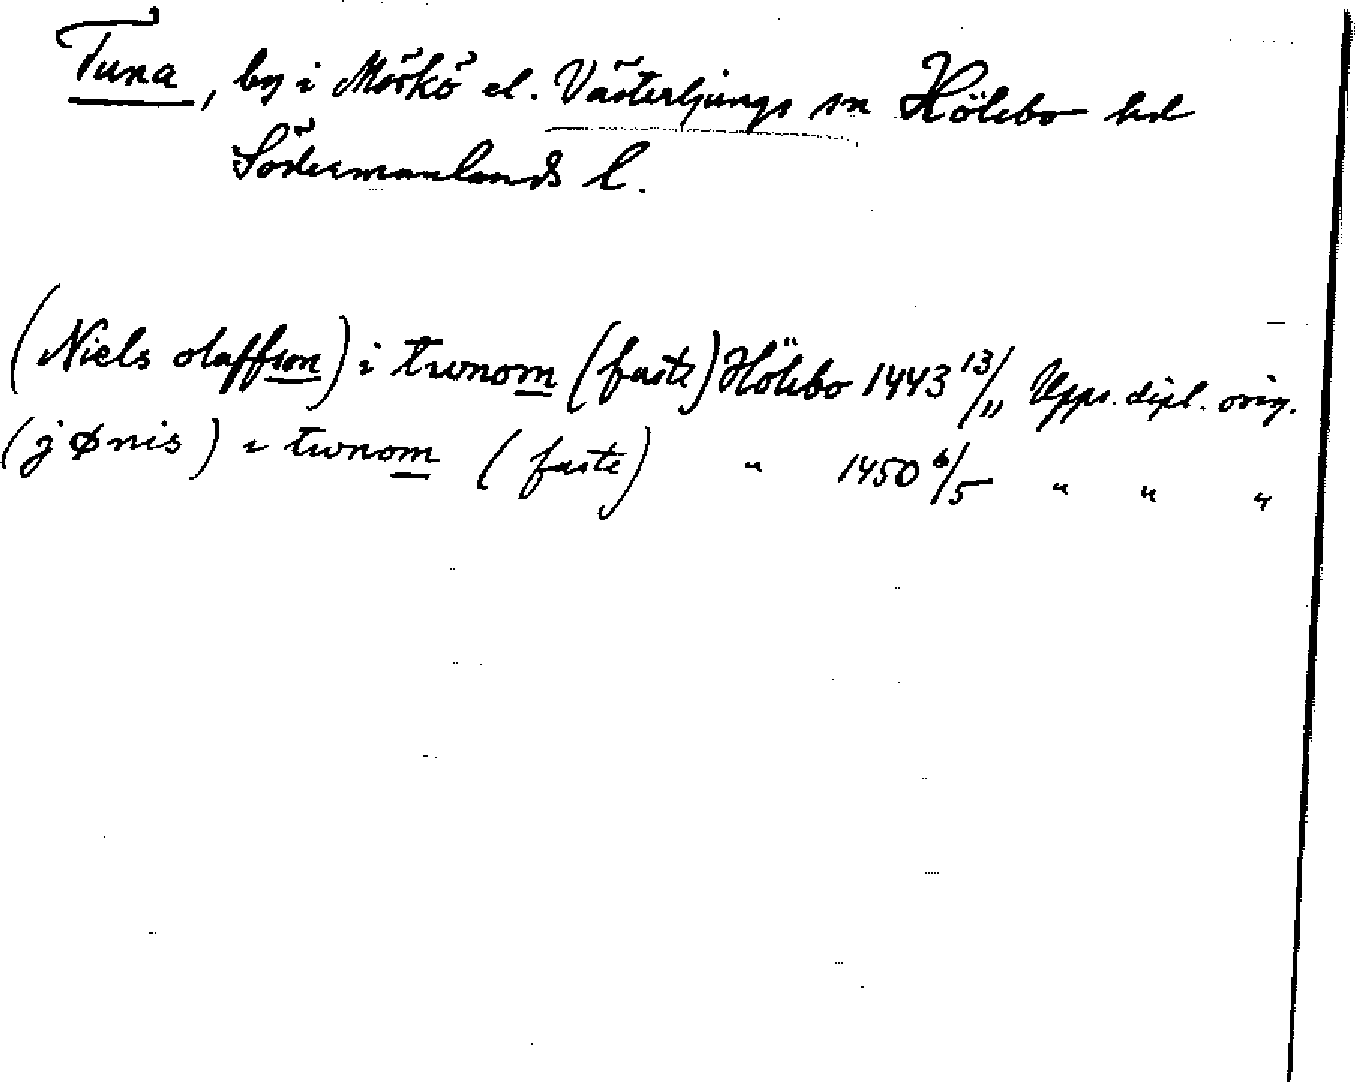 Tuna, by i Mörkö el. Västerljungs sn Hölebo hd
Södermanlands l.
(Niels olaffson) i twnom (faste) Hölebo 1443 13/11 Upps. dipl. orig.
(j Ønis) i twnom (faste) " 1450 6/5 " " "